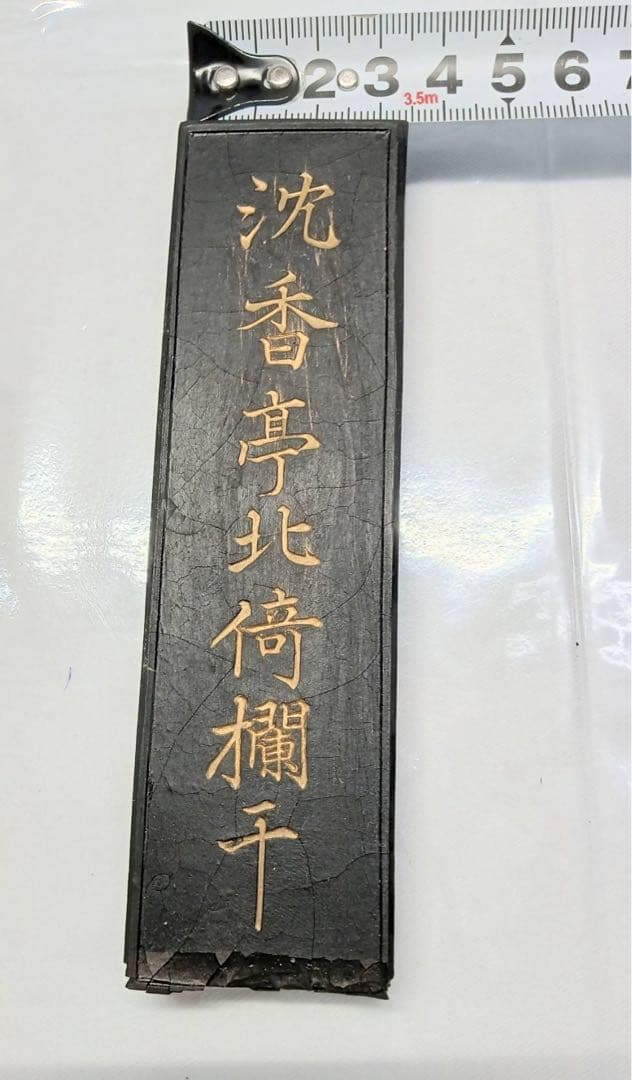 2 3 4 5 6 7
3.5m
沈香亭北倚欄干